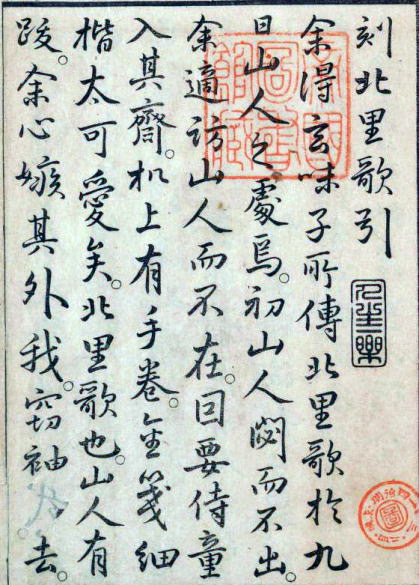 刻北里歌引
余得玄味子所傳北里歌於九
日山人之處焉。初山人閟而不出。
余適訪山人而不在。因要侍童
入其齋。机上有手卷。金箋細
楷太可愛矣。北里歌也。山人有
跋。余心嫉其外我。窃袖去。
帝國
圖書
館藏